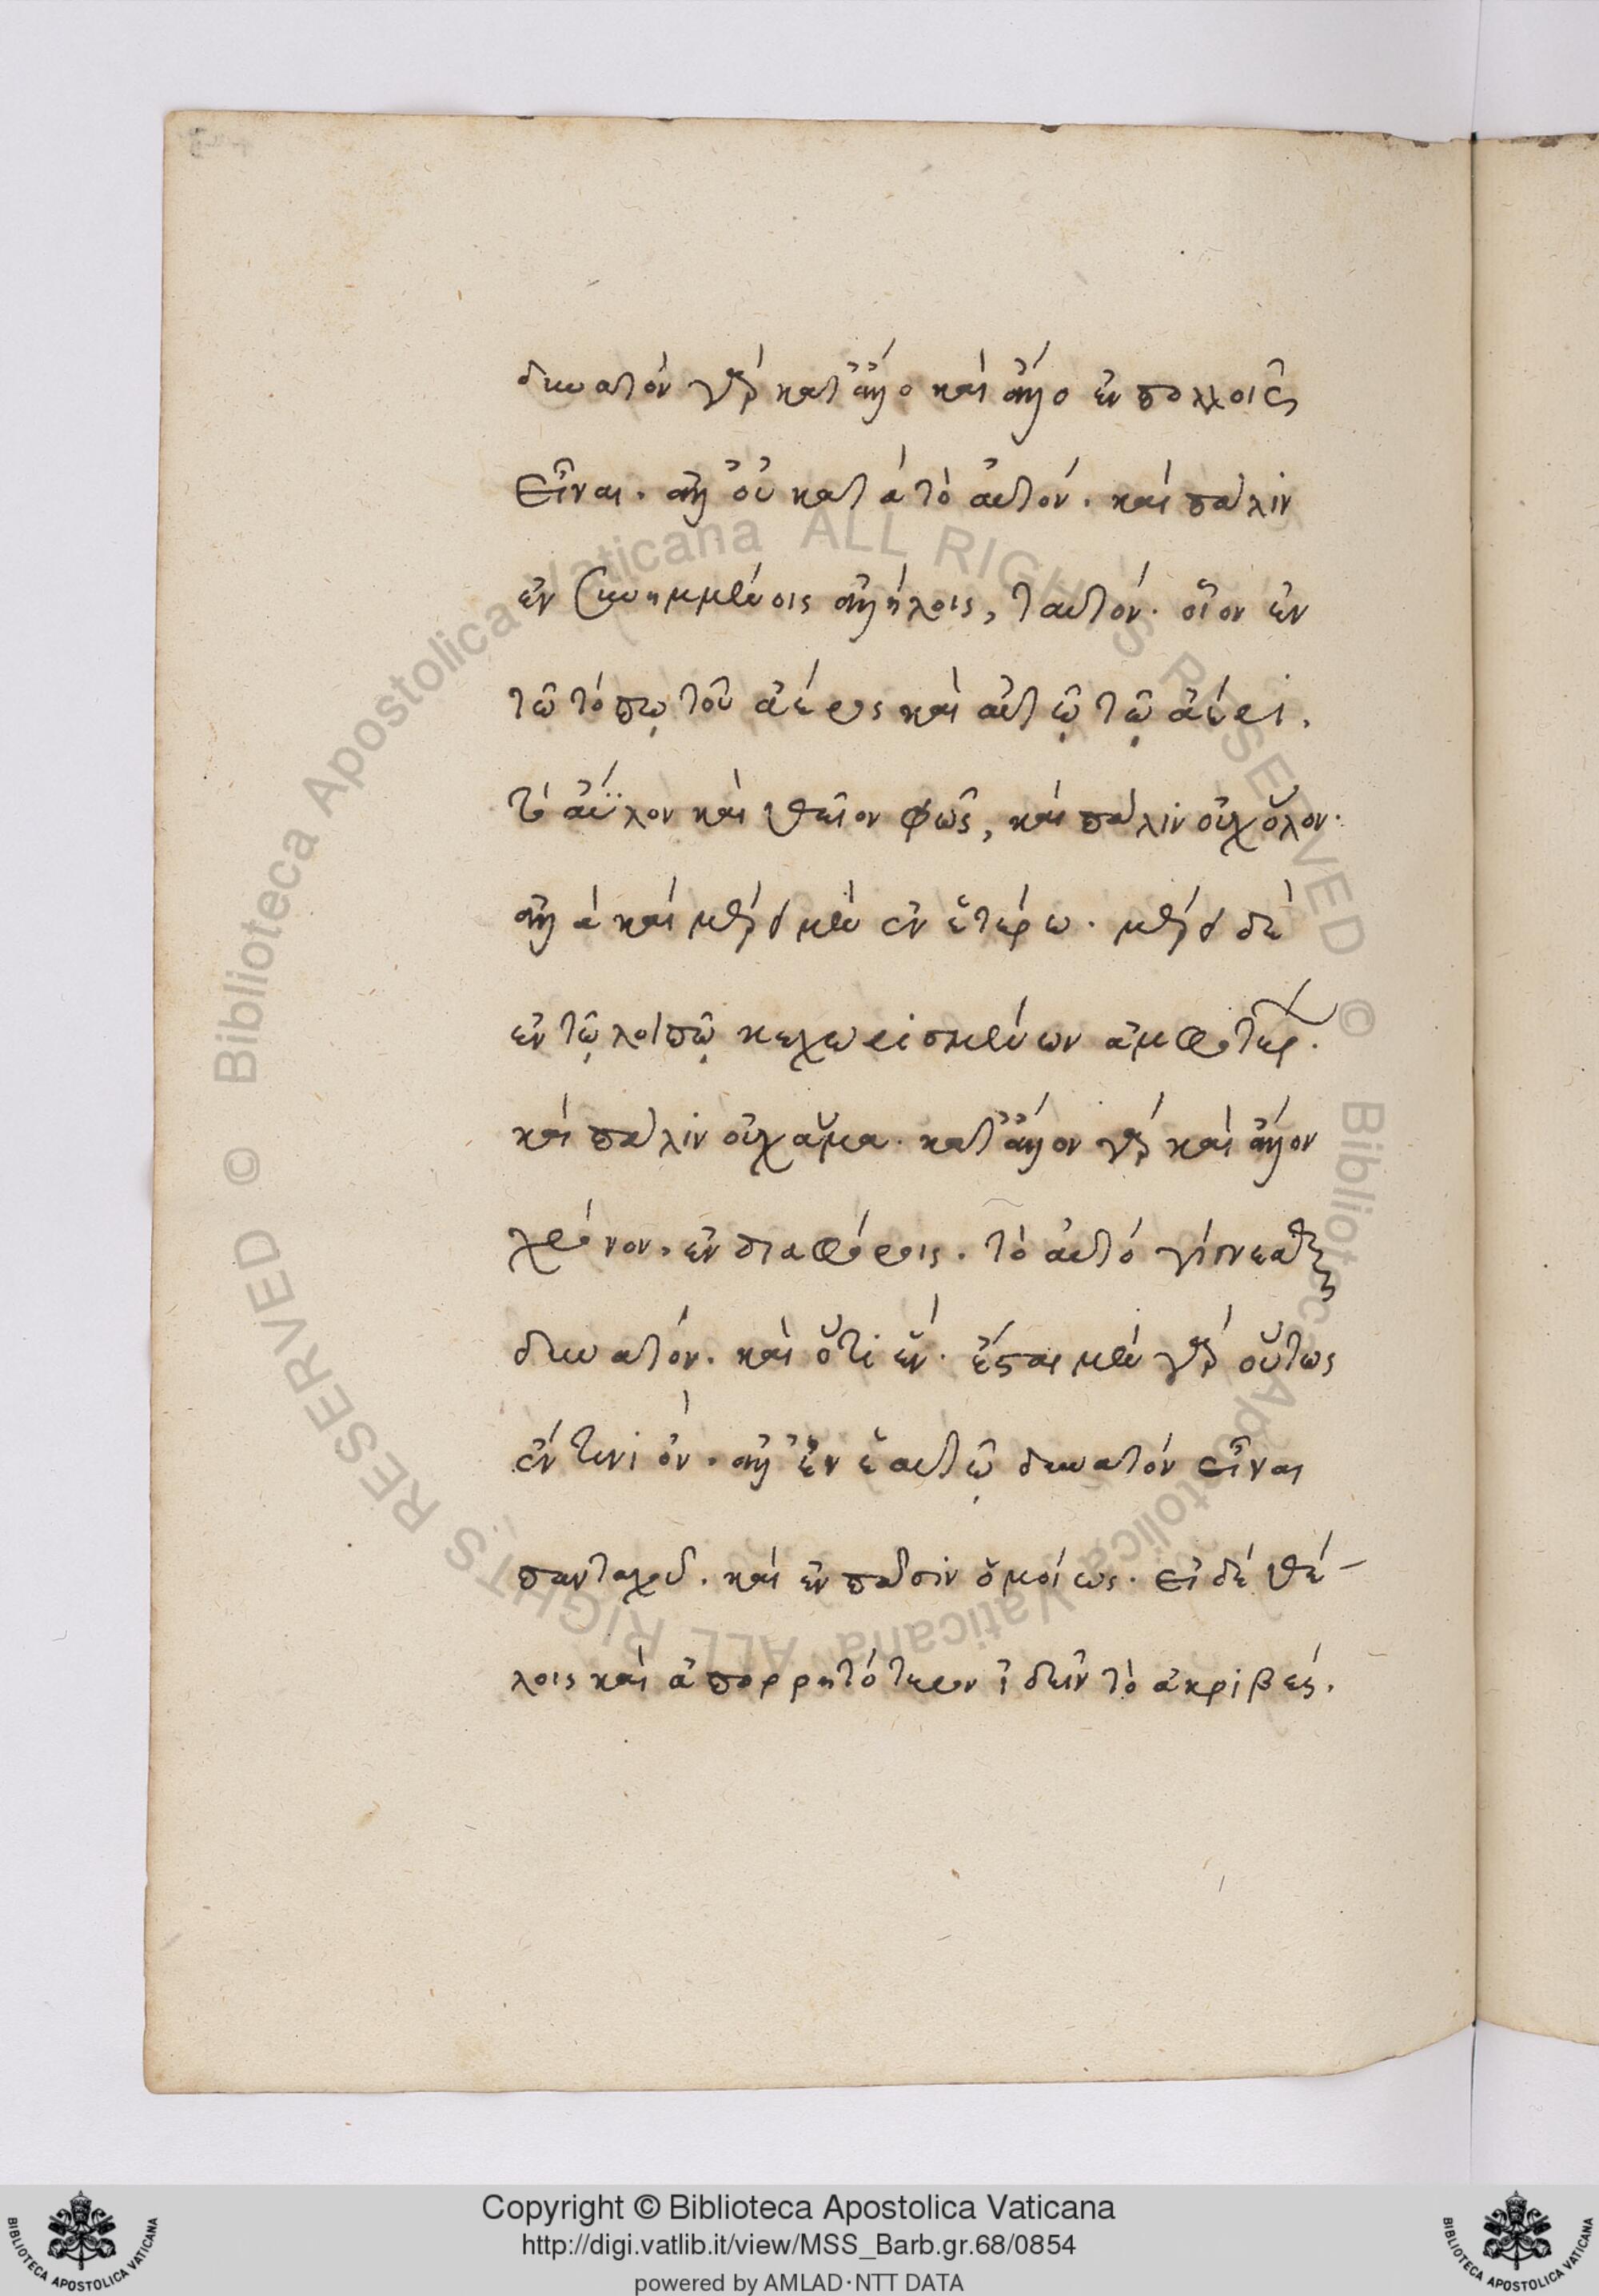 δυνατὸν γὰρ κατ' ἄλλο καὶ ἄλλο ἐν πολλοῖς
εἶναι. ἀλλ' οὐ κατὰ τὸ αὐτόν. καὶ πάλιν
ἐν συνημμένοις ἀλλήλοις, ταυτόν. οἷον ἐν
τῶ τόπῳ τοῦ ἀέρος καὶ αὐτῷ τῷ ἀέρι.
τὸ ἄϋλον καὶ θεῖον φῶς, καὶ πάλιν οὐχ ὅλον.
ἀλλὰ καὶ μέρος μὲν ἐν ἑτέρω. μέρος δὲ
ἐν τῷ λοιπῷ κεχωρισμένων ἀμφοτέρων.
καὶ πάλιν οὐχ ἅμα. κατ' ἄλλον γὰρ καὶ ἄλλον
χρόνον. ἐν διαφόροις. τὸ αὐτὸ γίνεσθαι
δυνατόν. καὶ ὅτι ἕν. ἔσται μὲν γὰρ οὕτως
ἐν τινὶ ὄν. ἀλλ' ἐν ἑαυτῷ δυνατὸν εἶναι
πανταχοῦ. καὶ ἐν πᾶσιν ὁμοίως. εἰ δὲ θέ-
λοις καὶ ἀπορρητότερον ἰδεῖν τὸ ἀκριβές.
Copyright © Biblioteca Apostolica Vaticana
http://digi.vatlib.it/view/MSS_Barb.gr.68/0854
powered by AMLAD·NTT DATA
BIBLIOTECA APOSTOLICA VATICANA
BIBLIOTECA APOSTOLICA VATICANA
© Biblioteca Apostolica Vaticana ALL RIGHTS RESERVED
© Biblioteca Apostolica Vaticana ALL RIGHTS RESERVED